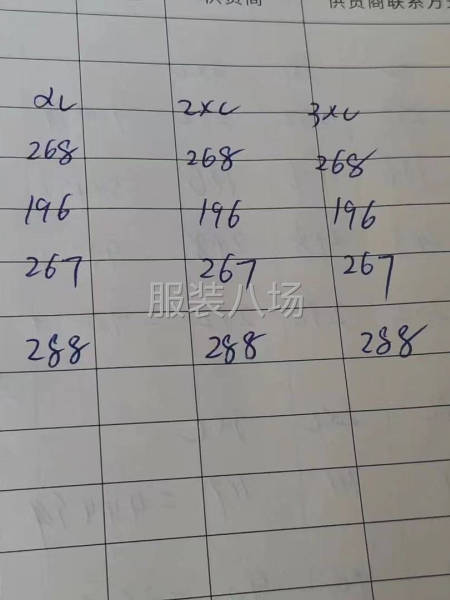 供货商 供货商联系方式
XL 2XL 3XL
268 268 268
196 196 196
267 267 267
服装八场
288 288 288